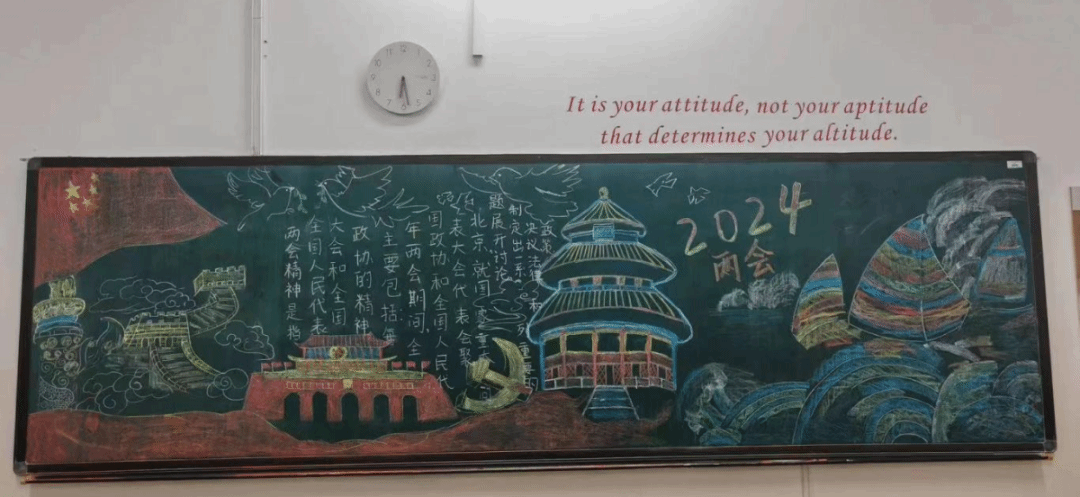 It is your attitude, not your aptitude
that determines your altitude.
2024
两会
两会精神是指
全国人民代表
大会和全国
政协的精神
主要包括每
年两会期间,全
国政协和全国人民代
表大会代表会聚
北京,就国家重大问
题展开讨论,
制定出一系列重要的
决议法律和
政策